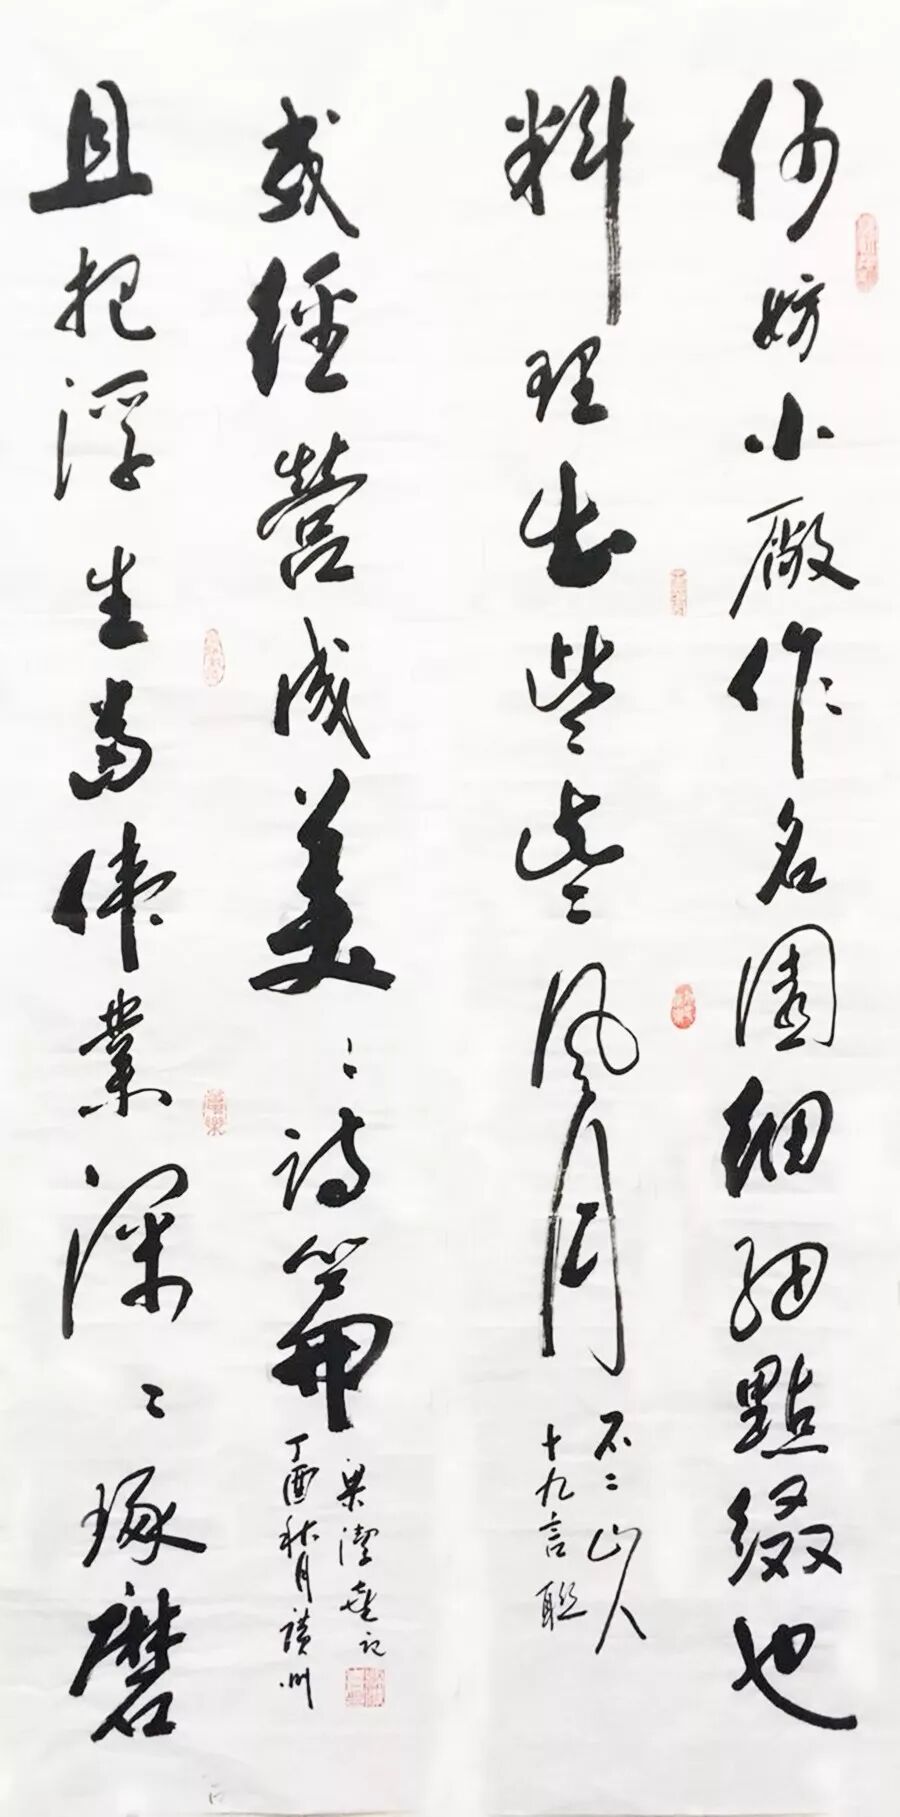 何妨小廠作名園細細點綴也
料理出些些風月
不二山人
十九言聯
且把浮生當偉業深〻琢磨
或經營成美〻詩篇
丁酉秋月